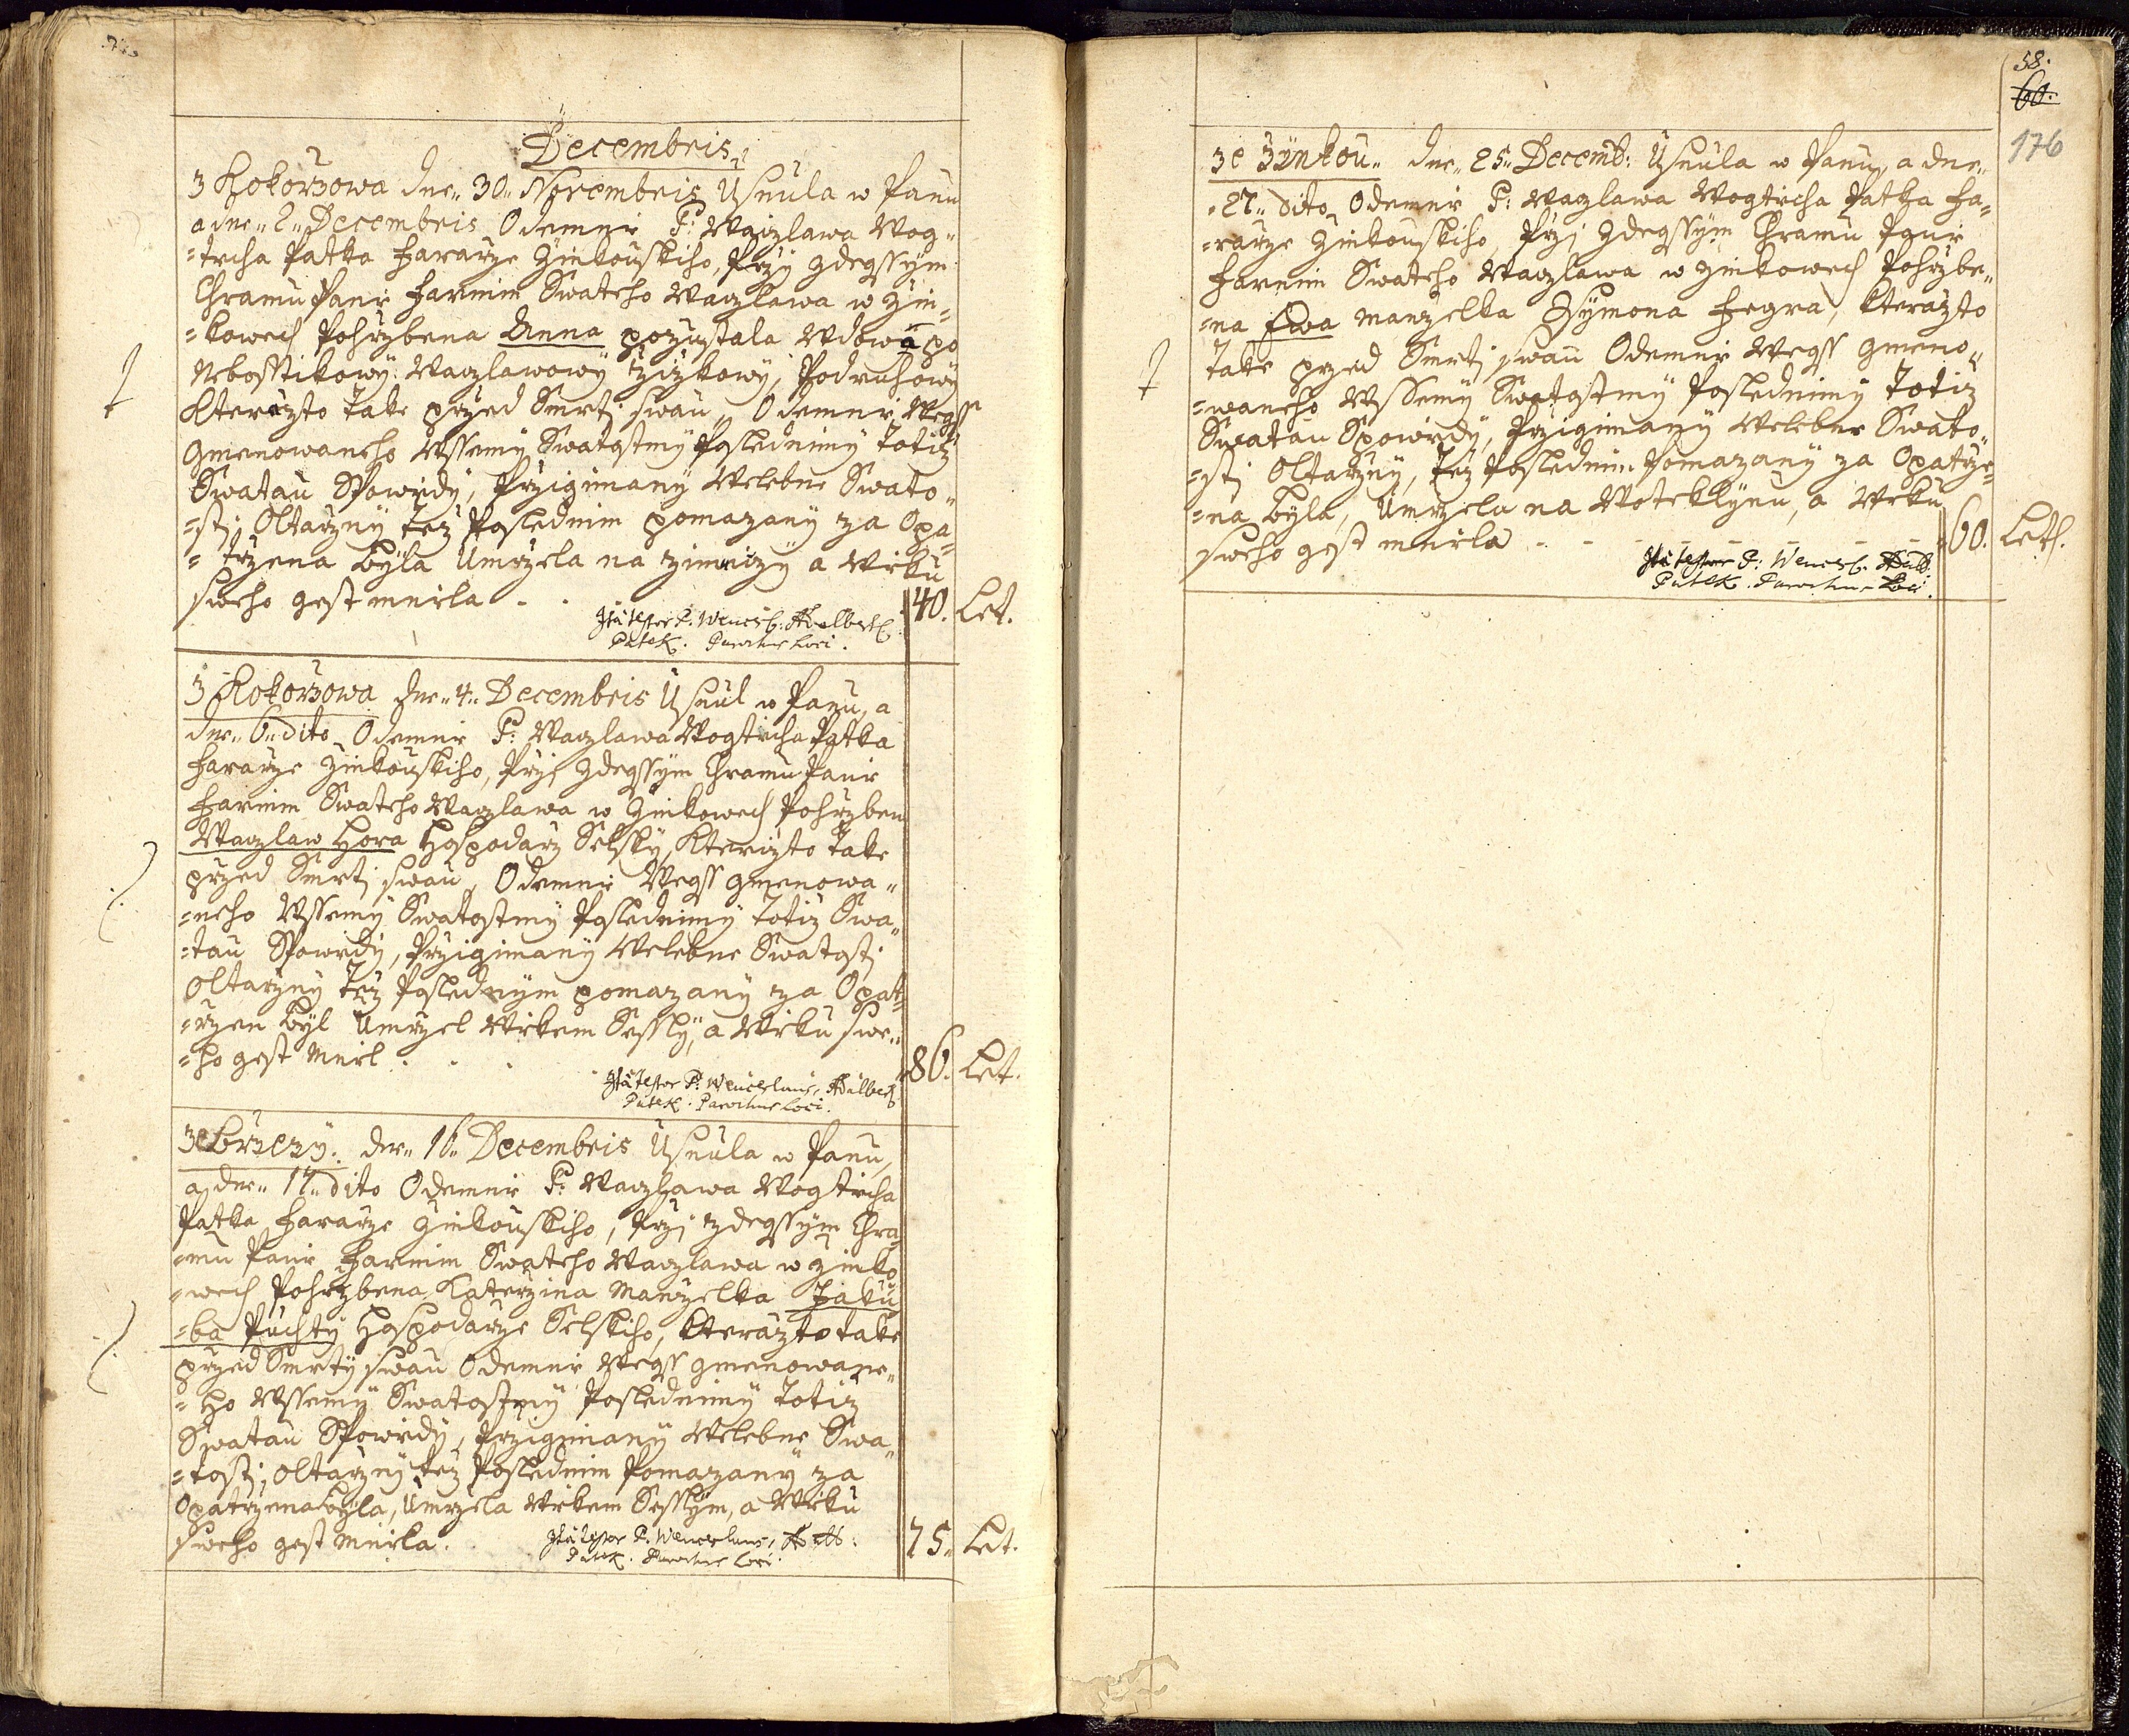 Decembris
Z Kokorzowa dne 30. Novembris Usnula w Panu
a dne 2. Decembris Odemne P: Waczlawa Wog„
=techa Patka Faraŕze Žinkouskiho, Przÿ Zdegssÿm
Chramu Panie Farnim Swateho Waczlawa w Žin„
=kowech Pohrzbena Anna pozustala Wdowa po
Nebosstikowÿ Waczlawowÿ Podruhowÿ
Kterazto Take przed Smrti swau, Odemne Wegss
Gmenowaneho Wssemÿ Swatostmÿ Poslednimÿ Totiz
Swatau Spowedÿ, Przigimanÿ Welebne Swato„
=sti Oltarznÿ Tez Poslednim pomazanÿ za Opa„
=trzena Bÿla Umrzela na zimniczÿ a Wieku
sweho gest miela - - 40. Let.
Ita testor P. Wencesl: Adalbert
Patek. Parochus Loci.
Z Kokorzowa dne 4. Decembris Usnul w Panu, a
dne 6. dito Odemne P: Waczlawa Wogtiecha Patka
Faraŕze Žinkouskiho, Przi Zdegssÿm Chramu Panie
Farnim Swateho Waczlawa w Žinkowech Pohrzben
Waczlaw Hora Hospodarz Selskÿ, Kterizto Take
przed Smrti swau, Odemne Wegss gmenowa„
=neho Wssemÿ Swatostmÿ Poslednimÿ Totiz Swa„
=tau Spowedÿ, Przigimanÿ Welebne Swatosti
Oltarznÿ Tez Poslednÿm pomazanÿ za Opat„
=rzen Bÿl Umrzel Wiekem Sesslÿ, a Wieku swe„
=ho gest Miel - - - 86. Let.
Ita Testor P: Wenceslaus, Adalbert
Patek. Parochus Loci.
Ze Brzezÿ. dne 16. Decembris Usnula w Panu,
a dne 17. dito Odemne P: Waczlawa Wogtiecha
Patka Faraŕze Žinkouskiho, Przi zdegssÿm Chra„
=mu Panie Farnim Swateho Waczlawa w Žinko„
=wech Pohrzbena, Katerzina Manzelka Jaku„
=ba Puchtÿ Hospodarze Selskiho, kterazto take
przed Smrtÿ swau Odemne Wegss gmenowane„
=ho Wssemÿ Swatostmÿ Poslednimÿ Totiz
Swatau Spowedÿ, Przigimanÿ Welebne Swa„
=tosti, Oltarznÿ tez Poslednim Pomazanÿ za
Opatrzena Bÿla, Umrzela Wiekem Sesslÿm, a Wieku
sweho gest Miela. 75. Let.
Ita testor P. Wenceslaus, Adalb:
Patek. Parochus Loci.
58.
60.
176
Ze Žÿnkou„ dne 25. Decemb: Usnula w Panu, a dne„
27. dito Odemne P: Waczlawa Wogtiecha Patka Fa„
=raŕze Žinkouskiho, Przi Zdegssÿm Chramu Panie
Farnim Swateho Waczlawa w Žinkowech Pohrzbe„
=na Ewa Manzelka Ssÿmona Fegra, kterazto
Take przed Smrti swau Odemne Wegss gmeno„
=waneho Wssemÿ Swatostmÿ Poslednimÿ Totiz
Swatau Spowiedÿ, Przigimanÿ Welebne Swato„
=sti Oltarznÿ, Tez Poslednim Pomazanÿ za Opatrze„
=na Bÿla, Umrzela na Woteklÿnu, a Wieku
sweho gest miela - - - - - 60. Leth.
Ita testor P: Wencesl. Adalb.
Patek. Parochus Loci.